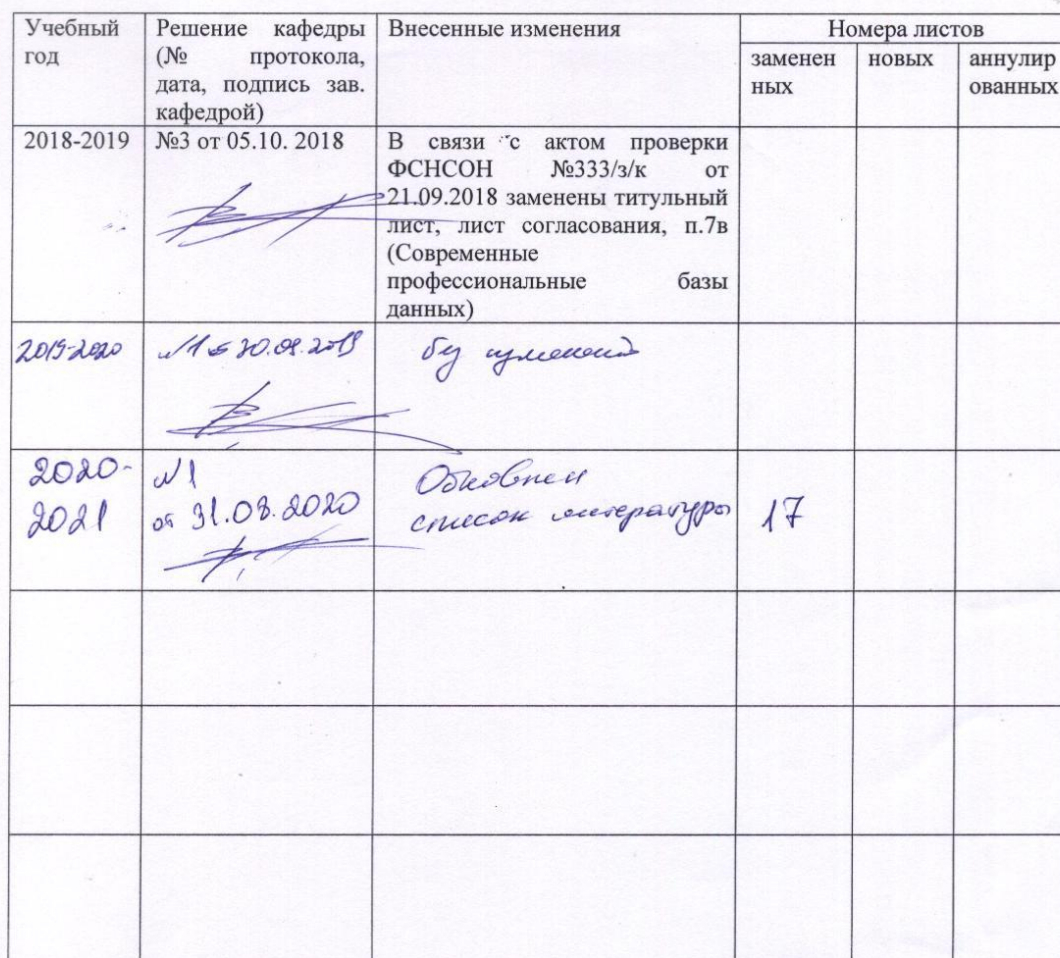 Учебный год
Решение кафедры
(№ протокола,
дата, подпись зав.
кафедрой)
Внесенные изменения
Номера листов
заменен
ных
новых
аннулир
ованных
2018-2019
№3 от 05.10. 2018
В связи с актом проверки
ФСНСОН №333/з/к от
21.09.2018 заменены титульный
лист, лист согласования, п.7в
(Современные
профессиональные базы
данных)
2019-2020
№1 от 30.08.2019
без изменений
2020-
2021
№1
от 31.08.2020
Обновлен
список литературы
17